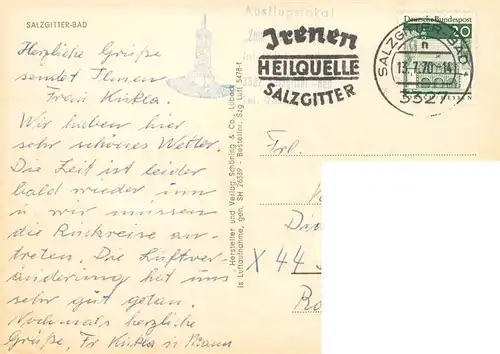 SALZGITTER-BAD
Herzliche Grüße
sendet Ihnen
Frau Kukla.
Wir haben hier
sehr schönes Wetter.
Die Zeit ist leider
bald wieder um
u wir müssen
die Rückreise an-
treten. Die Luftver-
änderung hat uns
sehr gut getan.
Nochmals herzliche
Grüße, Fr Kukla u Mann
Ausflugslokal
Hersteller und Verlag Schöning & Co., Lübeck
Bestellnr. Szg Luft 5478-1
ls Luftaufnahme, gen. SH 26359
Irenen
HEILQUELLE
SALZGITTER
Deutsche Bundespost
20
SALZGITTER-BAD
13.7.70-14
3327
Frl.
X 44